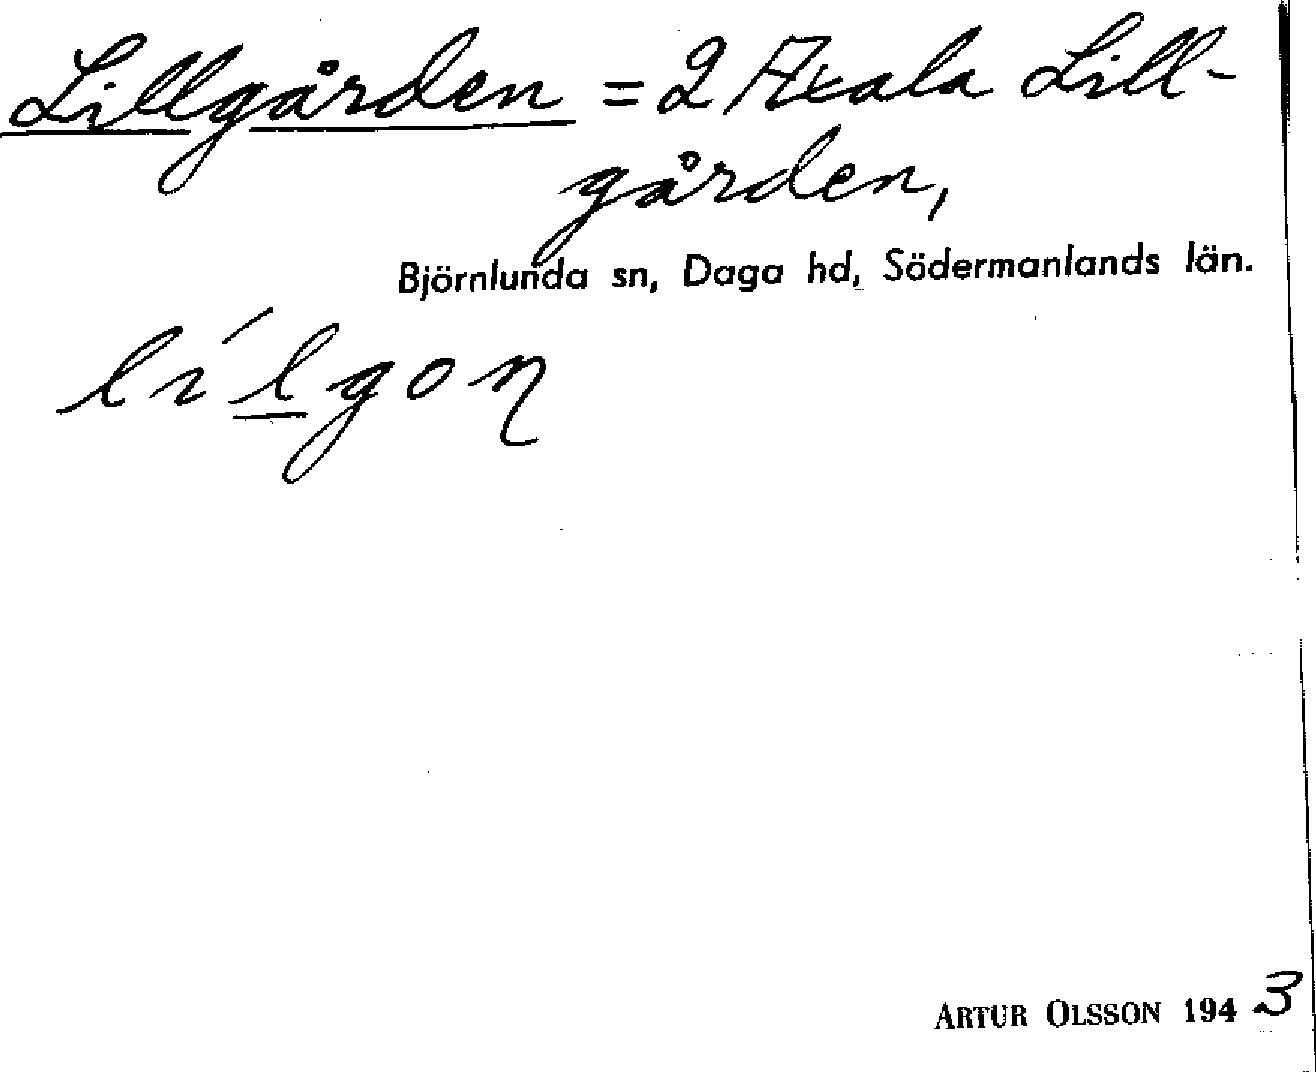 Lillgården = 2 Axala Lill-
gården,
Björnlunda sn, Daga hd, Södermanlands län.
lílgoŋ
ARTUR OLSSON 1943